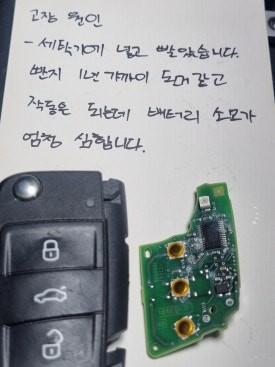 고장 원인
- 세탁기에 넣고 빨았습니다.
빤지 1년 가까이 되어 같고
작동은 되는데 배터리 소모가
엄청 심합니다.